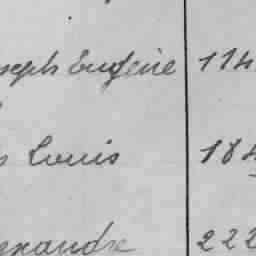 seph Eugène 114
s Louis 184
exandre 222